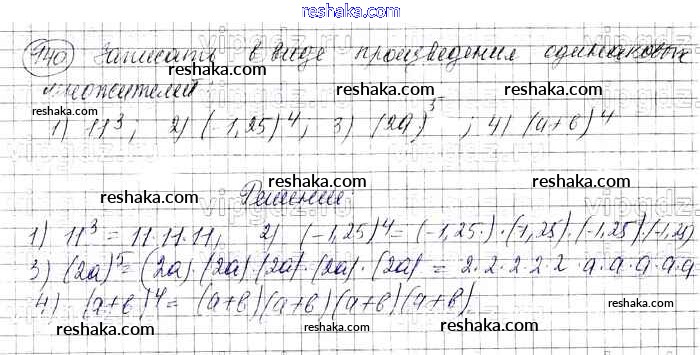 reshaka.com
940 Записать в виде произведения одинаковых
множителей
reshaka.com reshaka.com
1) 11³; 2) (-1,25)⁴; 3) (2a)⁵; 4) (a+b)⁴
reshaka.com
reshaka.com reshaka.com
Решение
reshaka.com
1) 11³ = 11·11·11; 2) (-1,25)⁴ = (-1,25·)·(-1,25)·(-1,25)·(-1,25)
reshaka.com reshaka.com
3) (2a)⁵ = (2a)·(2a)·(2a)·(2a)·(2a) = 2·2·2·2·2·a·a·a·a·a
4) (a+b)⁴ = (a+b)(a+b)(a+b)(a+b)
reshaka.com reshaka.com
reshaka.com